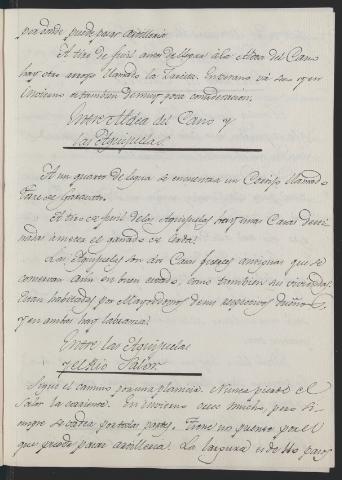 por donde puede pasar artilleria.
A tiro de fusil antes de llegar á la Aldea del Cano
hay otro arroyo llamado la Zarieta. En verano va seco y en
invierno es tambien de muy poca consideracion.
Entre Aldea del Cano y
las Ayuguelas.
A un quarto de legua se encuentra un Cortijo llamado
Torre de
A tiro de fusil de las hay unas Casas desti-
nadas á meter el ganado de cerda.
Las son dos Casas fuertes antiguas que se
conservan aun en buen estado, como tambien su viviendas.
Estan habitadas por Mayordomos de sus respectivos dueños,
y en ambas hay labranza.
Entre las
y el Rio Salor.
Sigue el camino por una planicie. Nunca pierde el
Salor la corriente. En invierno crece mucho, pero si-
empre se vadea por todas partes. Tiene un puente por el
que puede pasar artilleria. La largura es de 160 pasos